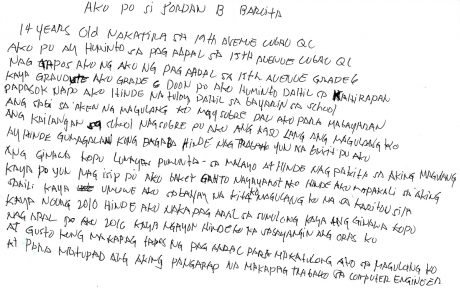 AKO PO SI JORDAN B BARCITA
14 YEARS Old NAKATIRA SA 19TH AVENUE CUBAO QC
AKO PO AY HUMINTO SA PAG AARAL SA 15TH AVENUE CUBAO QC
NAG TAPOS AKO NG AKO NG PAG AARAL SA 15TH AVENUE GRADE 6
KAYA GRADUATE AKO GRADE 6 DOON PO AKO HUMINTO DAHIL SA KAHIRAPAN
PAPASOK NAPO AKO HINDE NA tuloy DAHIL SA BAYARIN SA SCHOOL
ANG SABI SA AKEN NA MAGULANG KO MAY SOBRE DAW AKO PARA MABAYARAN
ANG KAILANGAN SA school NAGSOBRE PO AKO ANG KASO LANG ANG MAGULANG KO
AY HINDE GUMAGALAW KUNG BAGA HINDE NAG TRABAHO YUN NA
ANG GINAWA KOPO LUMAYAS PUMUNTA SA MALAYO AT HINDE NAG PAKITA SA AKING MAGULANG
KAYA PO YUN MAG ISIP PO AKO BAKET GANTO NAGYAYARI AKO HINDE AKO MAPAKALI SA AKING
SARILI KAYA UMUWE AKO SA BAHAY NA KITA KO MAGULANG KO NA SA KARITON SILA
KAYA NOONG 2010 HINDE AKO NAKAPAG ARAL SA SUMULONG KAYA ANG GINAWA KOPO
NAG ARAL PO AKO 2016 KAYA NGAYON HINDE KO NA SASAYANGIN ANG ORAS KO
AT GUSTO KONG MAKAPAG TAPOS NG PAG AARAL PARA MAKATULONG AKO SA MAGULANG KO
AT PARA MATUPAD ANG AKING PANGARAP NA MAKAPAG TRABAHO SA COMPUTER ENGINEER